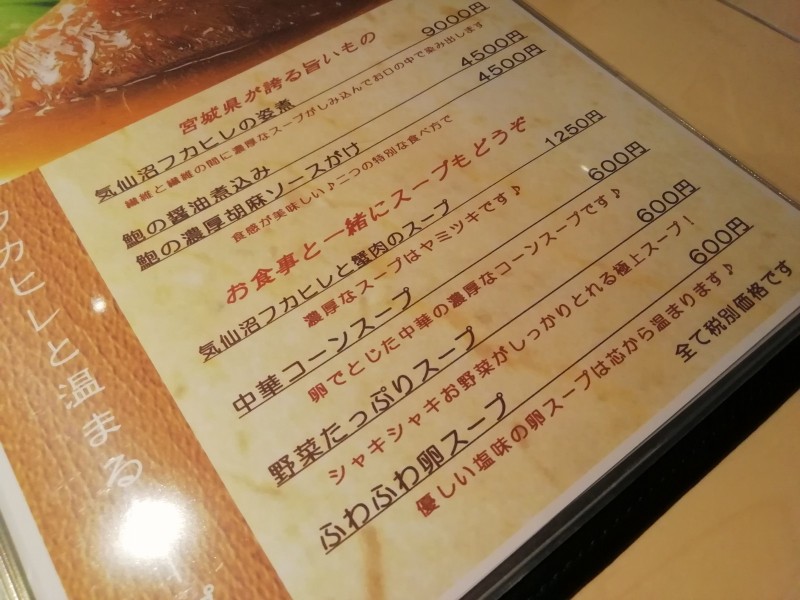 宮城県が誇る旨いもの
気仙沼フカヒレの姿煮 9000円
繊維と繊維の間に濃厚なスープがしみ込んでお口の中で染み出します
鮑の醤油煮込み 4500円
鮑の濃厚胡麻ソースがけ 4500円
食感が美味しい♪二つの特別な食べ方で
お食事と一緒にスープもどうぞ
気仙沼フカヒレと蟹肉のスープ 1250円
濃厚なスープはヤミツキです♪
中華コーンスープ 600円
卵でとじた中華の濃厚なコーンスープです♪
野菜たっぷりスープ 600円
シャキシャキお野菜がしっかりとれる極上スープ!
ふわふわ卵スープ 600円
優しい塩味の卵スープは芯から温まります♪
全て税別価格です
カヒレと温まる